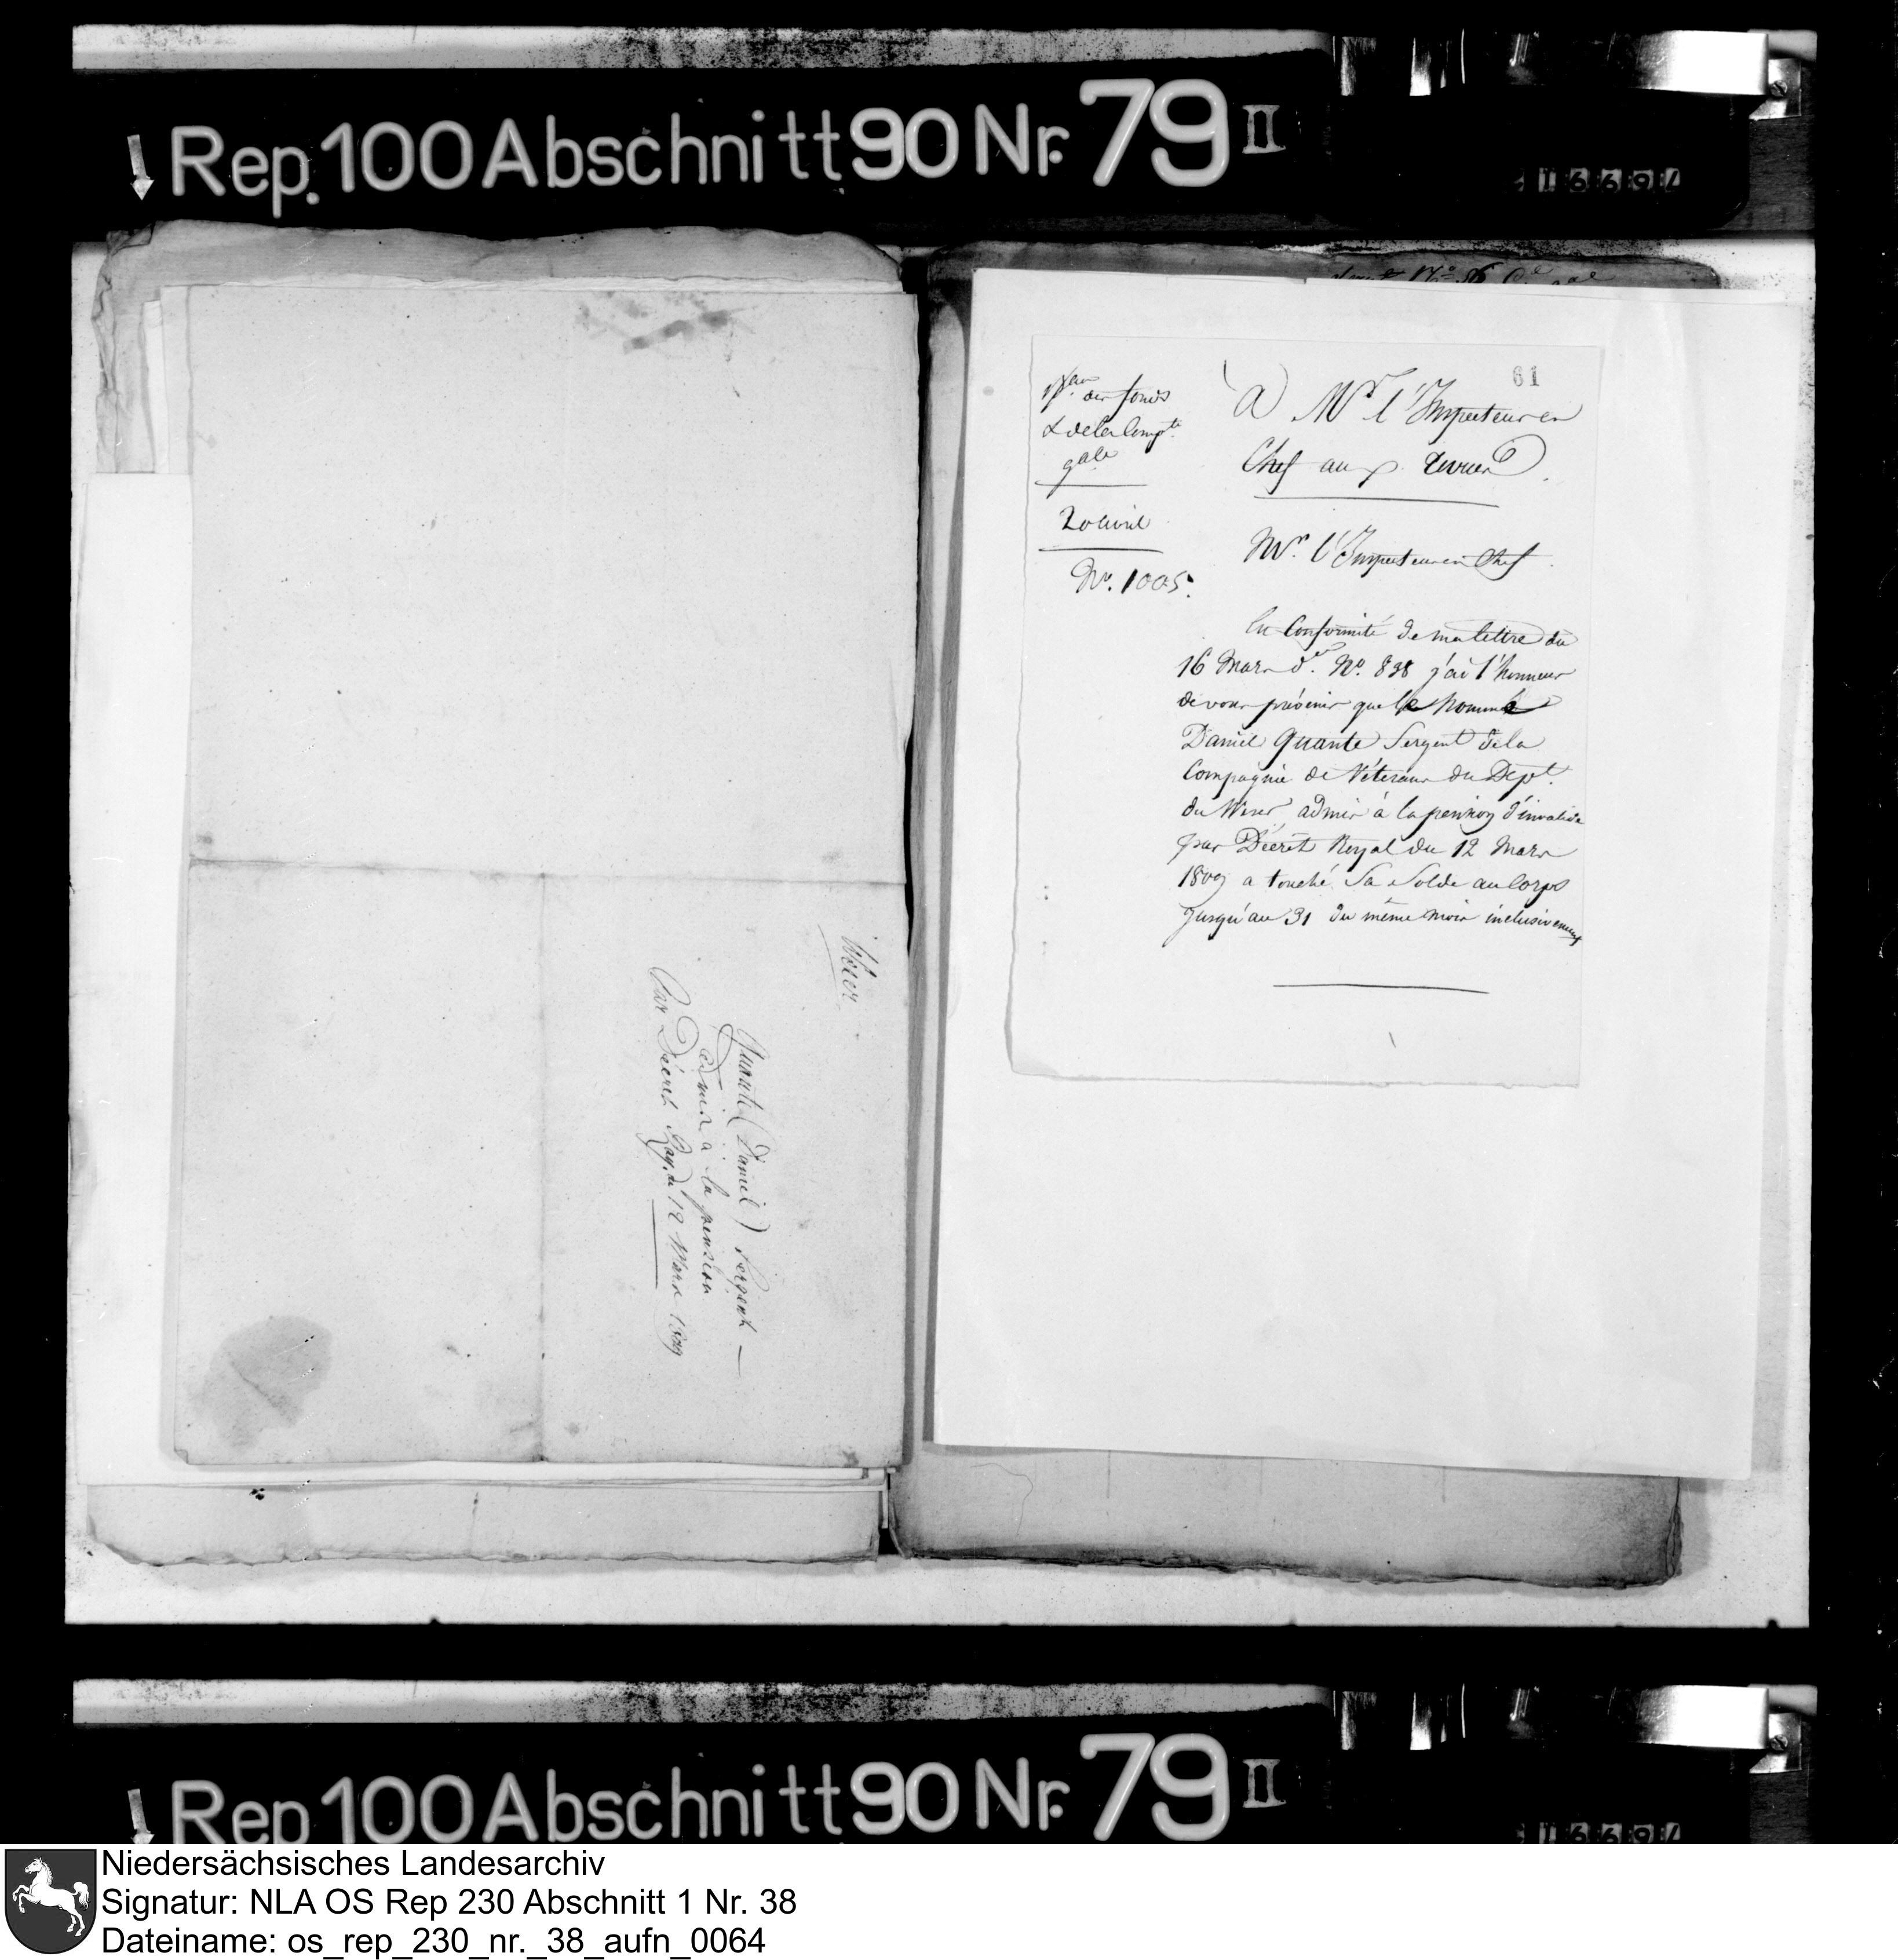 Rep. 100 Abschnitt 90 Nr. 79 II
16694
Weser.
Quante (Daniel) Sergent —
admis à la pension
Par Décret Roy. du 12 Mars 1809
61
des fonds
& de la Compté.
gale
20 avril
No. 1005.
A Mr. l'Inspecteur en
Chef aux revues.
Mr. l'Inspecteur en Chef
En Conformité de ma lettre du
16 Mars der. No. 838 j'ai l'honneur
de vous prévenir que le nommé
Daniel Quante Sergent de la
Compagnie de Vétérans du Dépt.
du Weser, admis à la pension d'invalide
par Décret Royal du 12 Mars
1809 a touché Sa Solde au Corps
jusqu'au 31 du même mois inclusivement
Rep 100 Abschnitt 90 Nr. 79 II
16694
Niedersächsisches Landesarchiv
Signatur: NLA OS Rep 230 Abschnitt 1 Nr. 38
Dateiname: os_rep_230_nr._38_aufn_0064